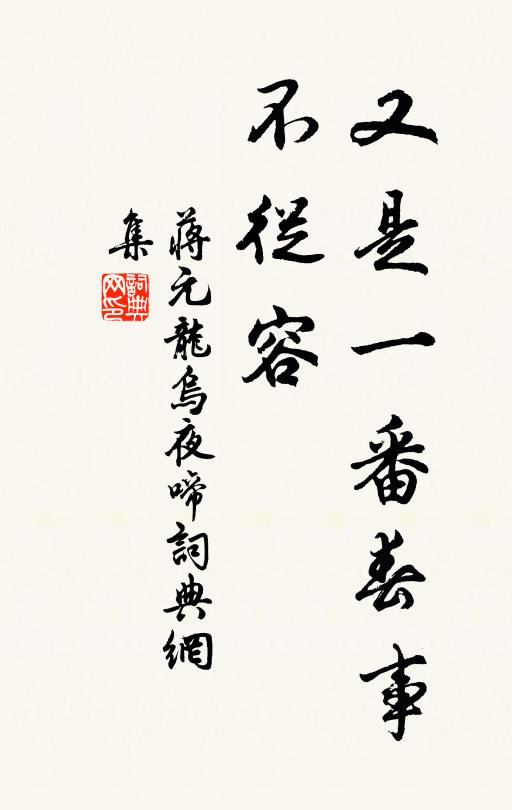 又是一番春事
不從容
蔣元龍烏夜啼詞典網
集
詞典
网印